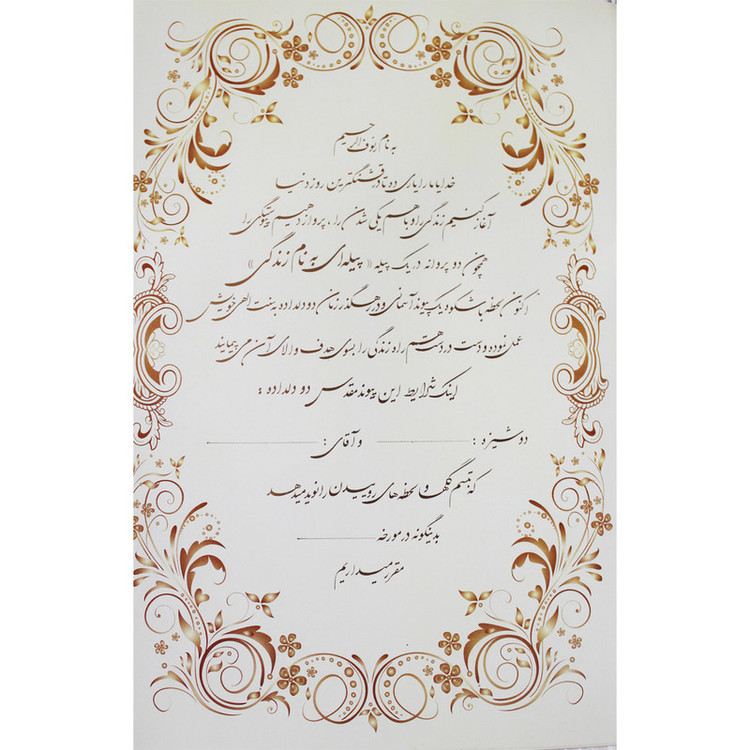 به نام رئوف الرحیم
خدایا ما را یاری ده تا در قشنگترین روز دنیا
آغاز کنیم زندگی را و با هم یکی شدن را، پرواز دهیم پیوستگی را
همچون دو پروانه در یک پیله « پیله‌ای به نام زندگی »
اکنون لحظه باشکوه یک پیوند آسمانی و در رهگذر زمان دو دلداده به سنت الهی خویش
عمل نموده و دست در دست هم راه زندگی را بسوی هدف والای آن می پیمایند
اینک شرایط این پیوند مقدس دو دلداده :
دوشیزه : و آقای :
که تبسم گلها و لحظه های روییدن را نوید میدهد
بدینگونه در مورخه
مقرر میداریم